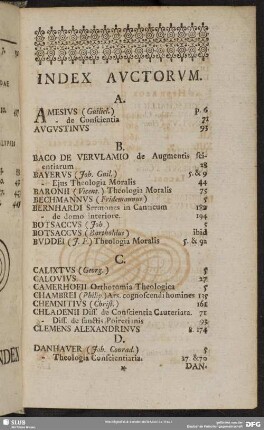 INDEX AVCTORVM.
A.
AMESIVS (Guiliel.) p. 6
- de Conscientia 71
AVGVSTINVS 95
B.
BACO DE VERVLAMIO de Augmentis sci-
entiarum 28
BAYERVS (Joh. Guil.) 5. & 9
- Ejus Theologia Moralis 44
BARONII (Vincent.) Theologia Moralis 75
BECHMANNVS (Fridemannus) 5
BERNHARDI Sermones in Canticum
- de domo interiore. 194
BOTSACCVS (Joh.) 5
BOTSACCVS (Bartholdus) ibid
BVDDEI (J. F.) Theologia Moralis 5. & 92
C.
CALIXTVS (Georg.) 5
CALOVIVS 27
CAMERHOFII Orthotomia Theologica 5
CHAMBREI (Philip.) Ars cognoscendi homines 115
CHEMNITIUS (Christ.) 161
CHLADENII Diss. de Conscientia Cauteriata. 71
- Diss. de sanctis Poiretianis 93
CLEMENS ALEXANDRINVS 8. 174
D.
DANHAVER (Joh. Conrad.) 5
- Theologia Conscientiaria. 27. & 70
DAN-
INDEX
SLUB
DFG